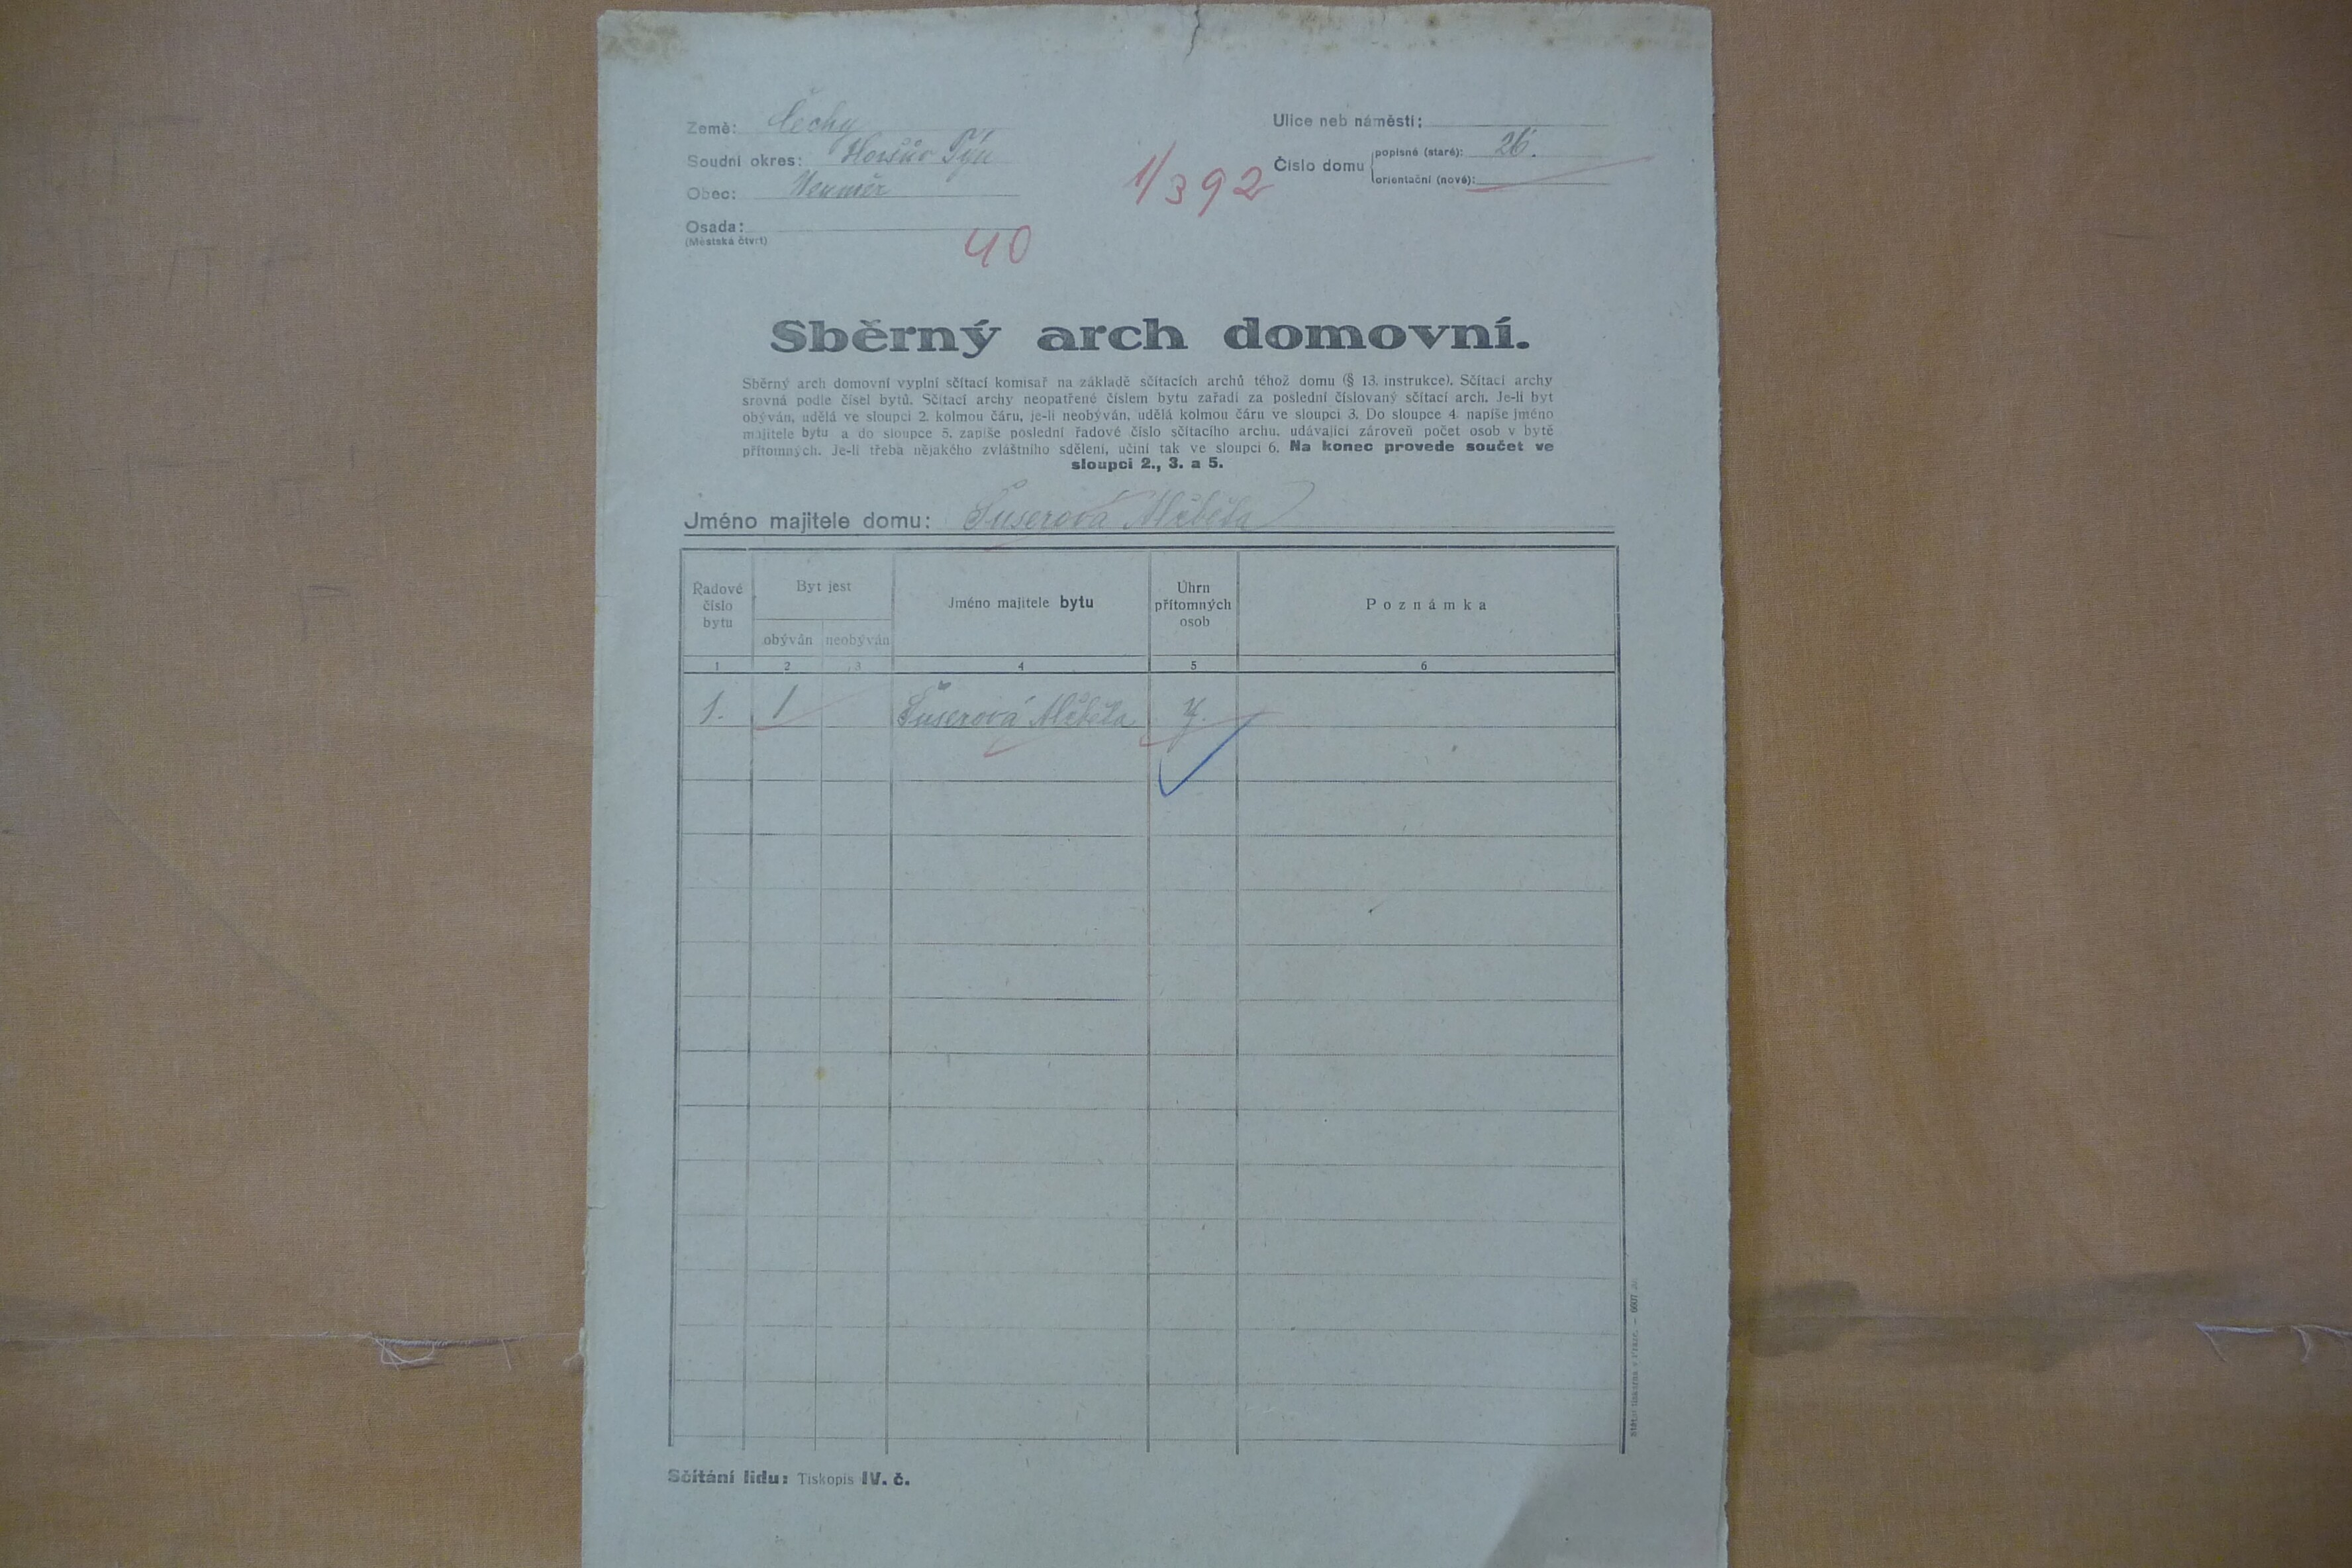 Země: Čechy
Soudní okres: Horšův Týn
Obec: Neuměř
Osada:
(Městská čtvrt)
40
1/392
Ulice neb náměstí:
Číslo domu
popisné (staré): 26.
orientační (nové):
Sběrný arch domovní.
Sběrný arch domovní vyplní sčítací komisař na základě sčítacích archů téhož domu (§ 13. instrukce). Sčítací archy
srovná podle čísel bytů. Sčítací archy neopatřené číslem bytu zařadí za poslední číslovaný sčítací arch. Je-li byt
obýván, udělá ve sloupci 2. kolmou čáru, je-li neobýván, udělá kolmou čáru ve sloupci 3. Do sloupce 4. napíše jméno
majitele bytu a do sloupce 5. zapíše poslední řadové číslo sčítacího archu, udávající zároveň počet osob v bytě
přítomných. Je-li třeba nějakého zvláštního sdělení, učiní tak ve sloupci 6. Na konec provede součet ve
sloupci 2., 3. a 5.
Jméno majitele domu: Alžběta
Řadové číslo bytu
Byt jest
obýván
neobýván
Jméno majitele bytu
Úhrn přítomných osob
Poznámka
1 2 3 4 5 6
1. 1 Alžběta
Sčítání lidu: Tiskopis IV. č.
Státní tiskárna v Praze. — 6607